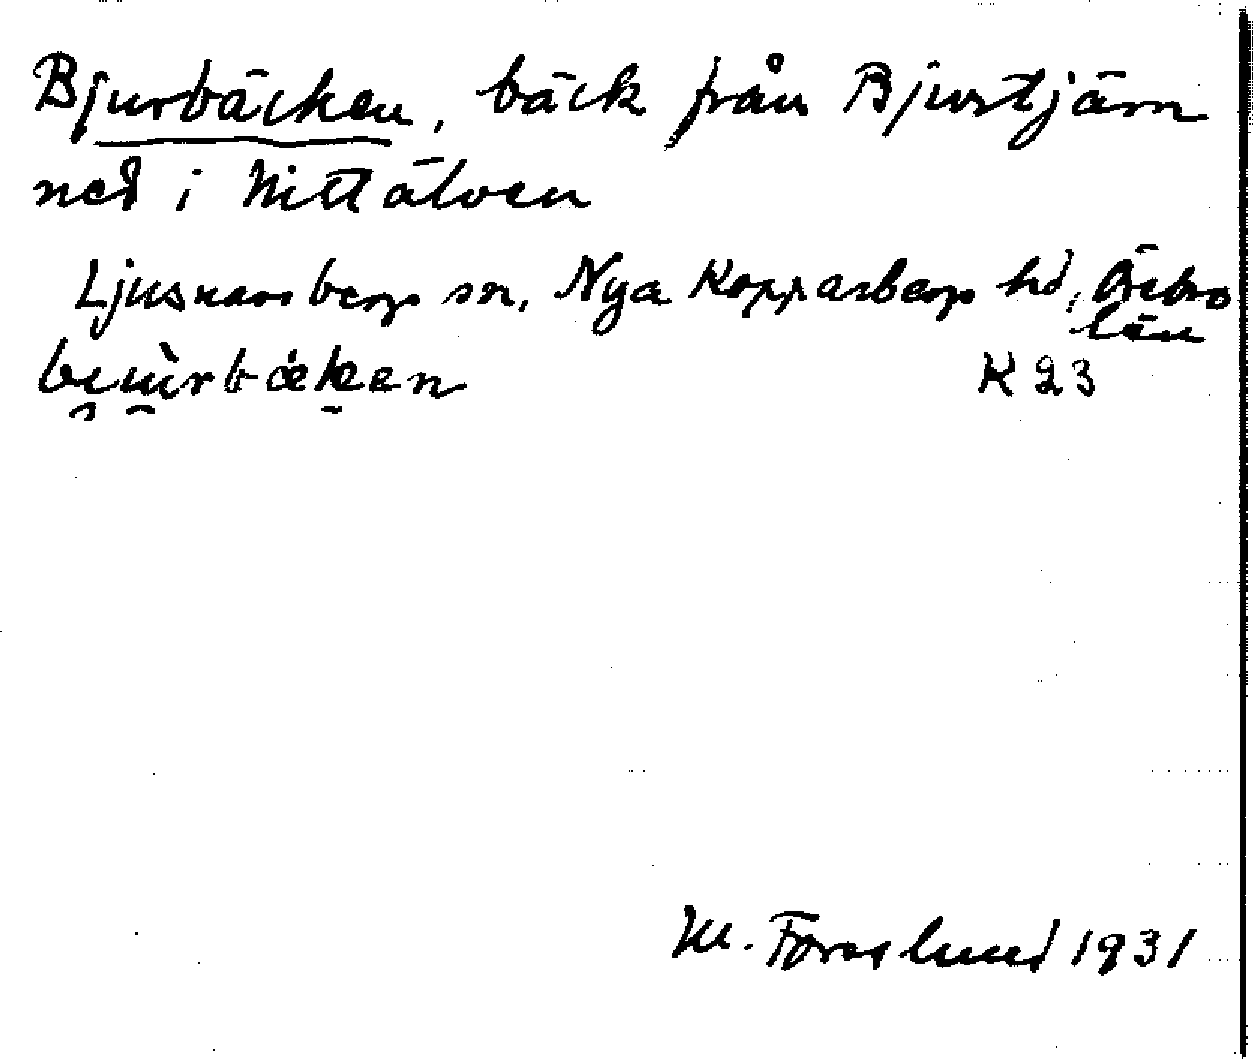 Bjurbäcken, bäck från Bjurtjärn
ned i Nittälven
Ljusnarsbergs sn, Nya Kopparbergs hd, Örebro
län
K 23
M. Forslund 1931